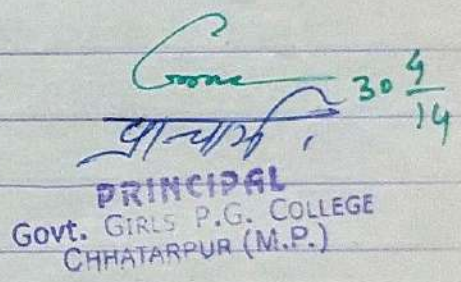 30 4/14
प्राचार्य
PRINCIPAL
Govt. GIRLS P.G. COLLEGE
CHHATARPUR (M.P.)